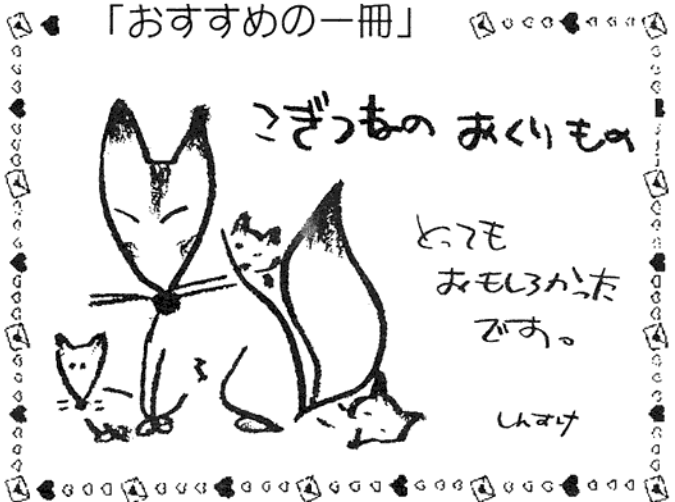 「おすすめの一冊」
こぎつねの おくりもの
とっても
おもしろかった
です。
しんすけ